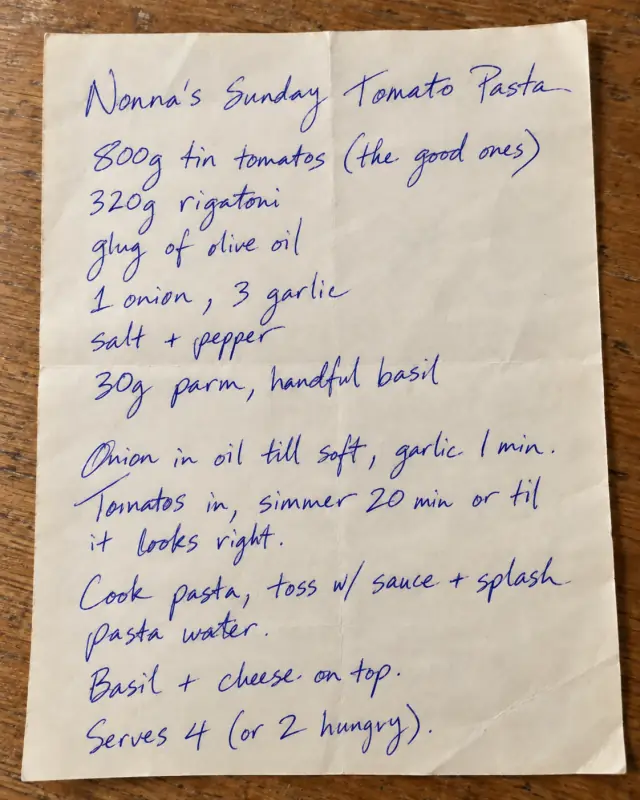 Nonna's Sunday Tomato Pasta
800g tin tomatos (the good ones)
320g rigatoni
glug of olive oil
1 onion, 3 garlic
salt + pepper
30g parm, handful basil
Onion in oil till soft, garlic 1 min.
Tomatos in, simmer 20 min or til
it looks right.
Cook pasta, toss w/ sauce + splash
pasta water.
Basil + cheese on top.
Serves 4 (or 2 hungry).